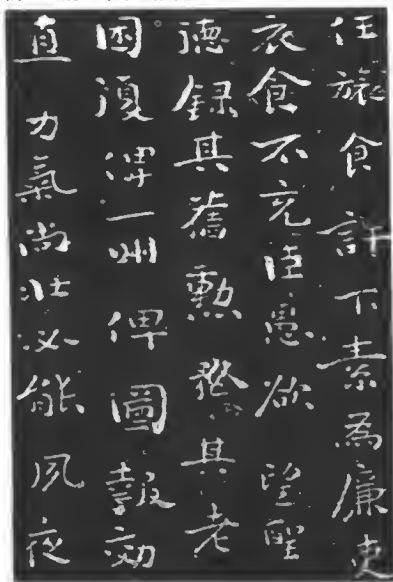 任旅食許下素為廉吏
衣食不充臣愚欲望聖
德錄其舊勳矜其老
困復俾一州俾圖報効
直力氣尚壯必能夙夜